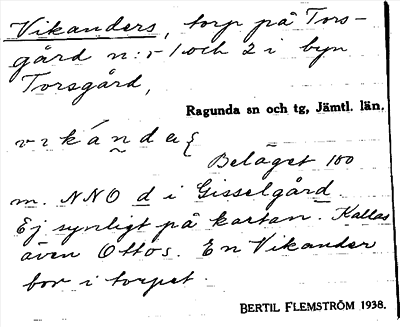 Vikanders, torp på Tors-
gård n:r 1 och 2 i byn
Torsgård,
Ragunda sn och tg, Jämtl. län.
Beläget 100
m. NNO d i Gisselgård.
Ej synligt på kartan. Kallas
även Ottos. En Vikander
bor i torpet.
BERTIL FLEMSTRÖM 1938.